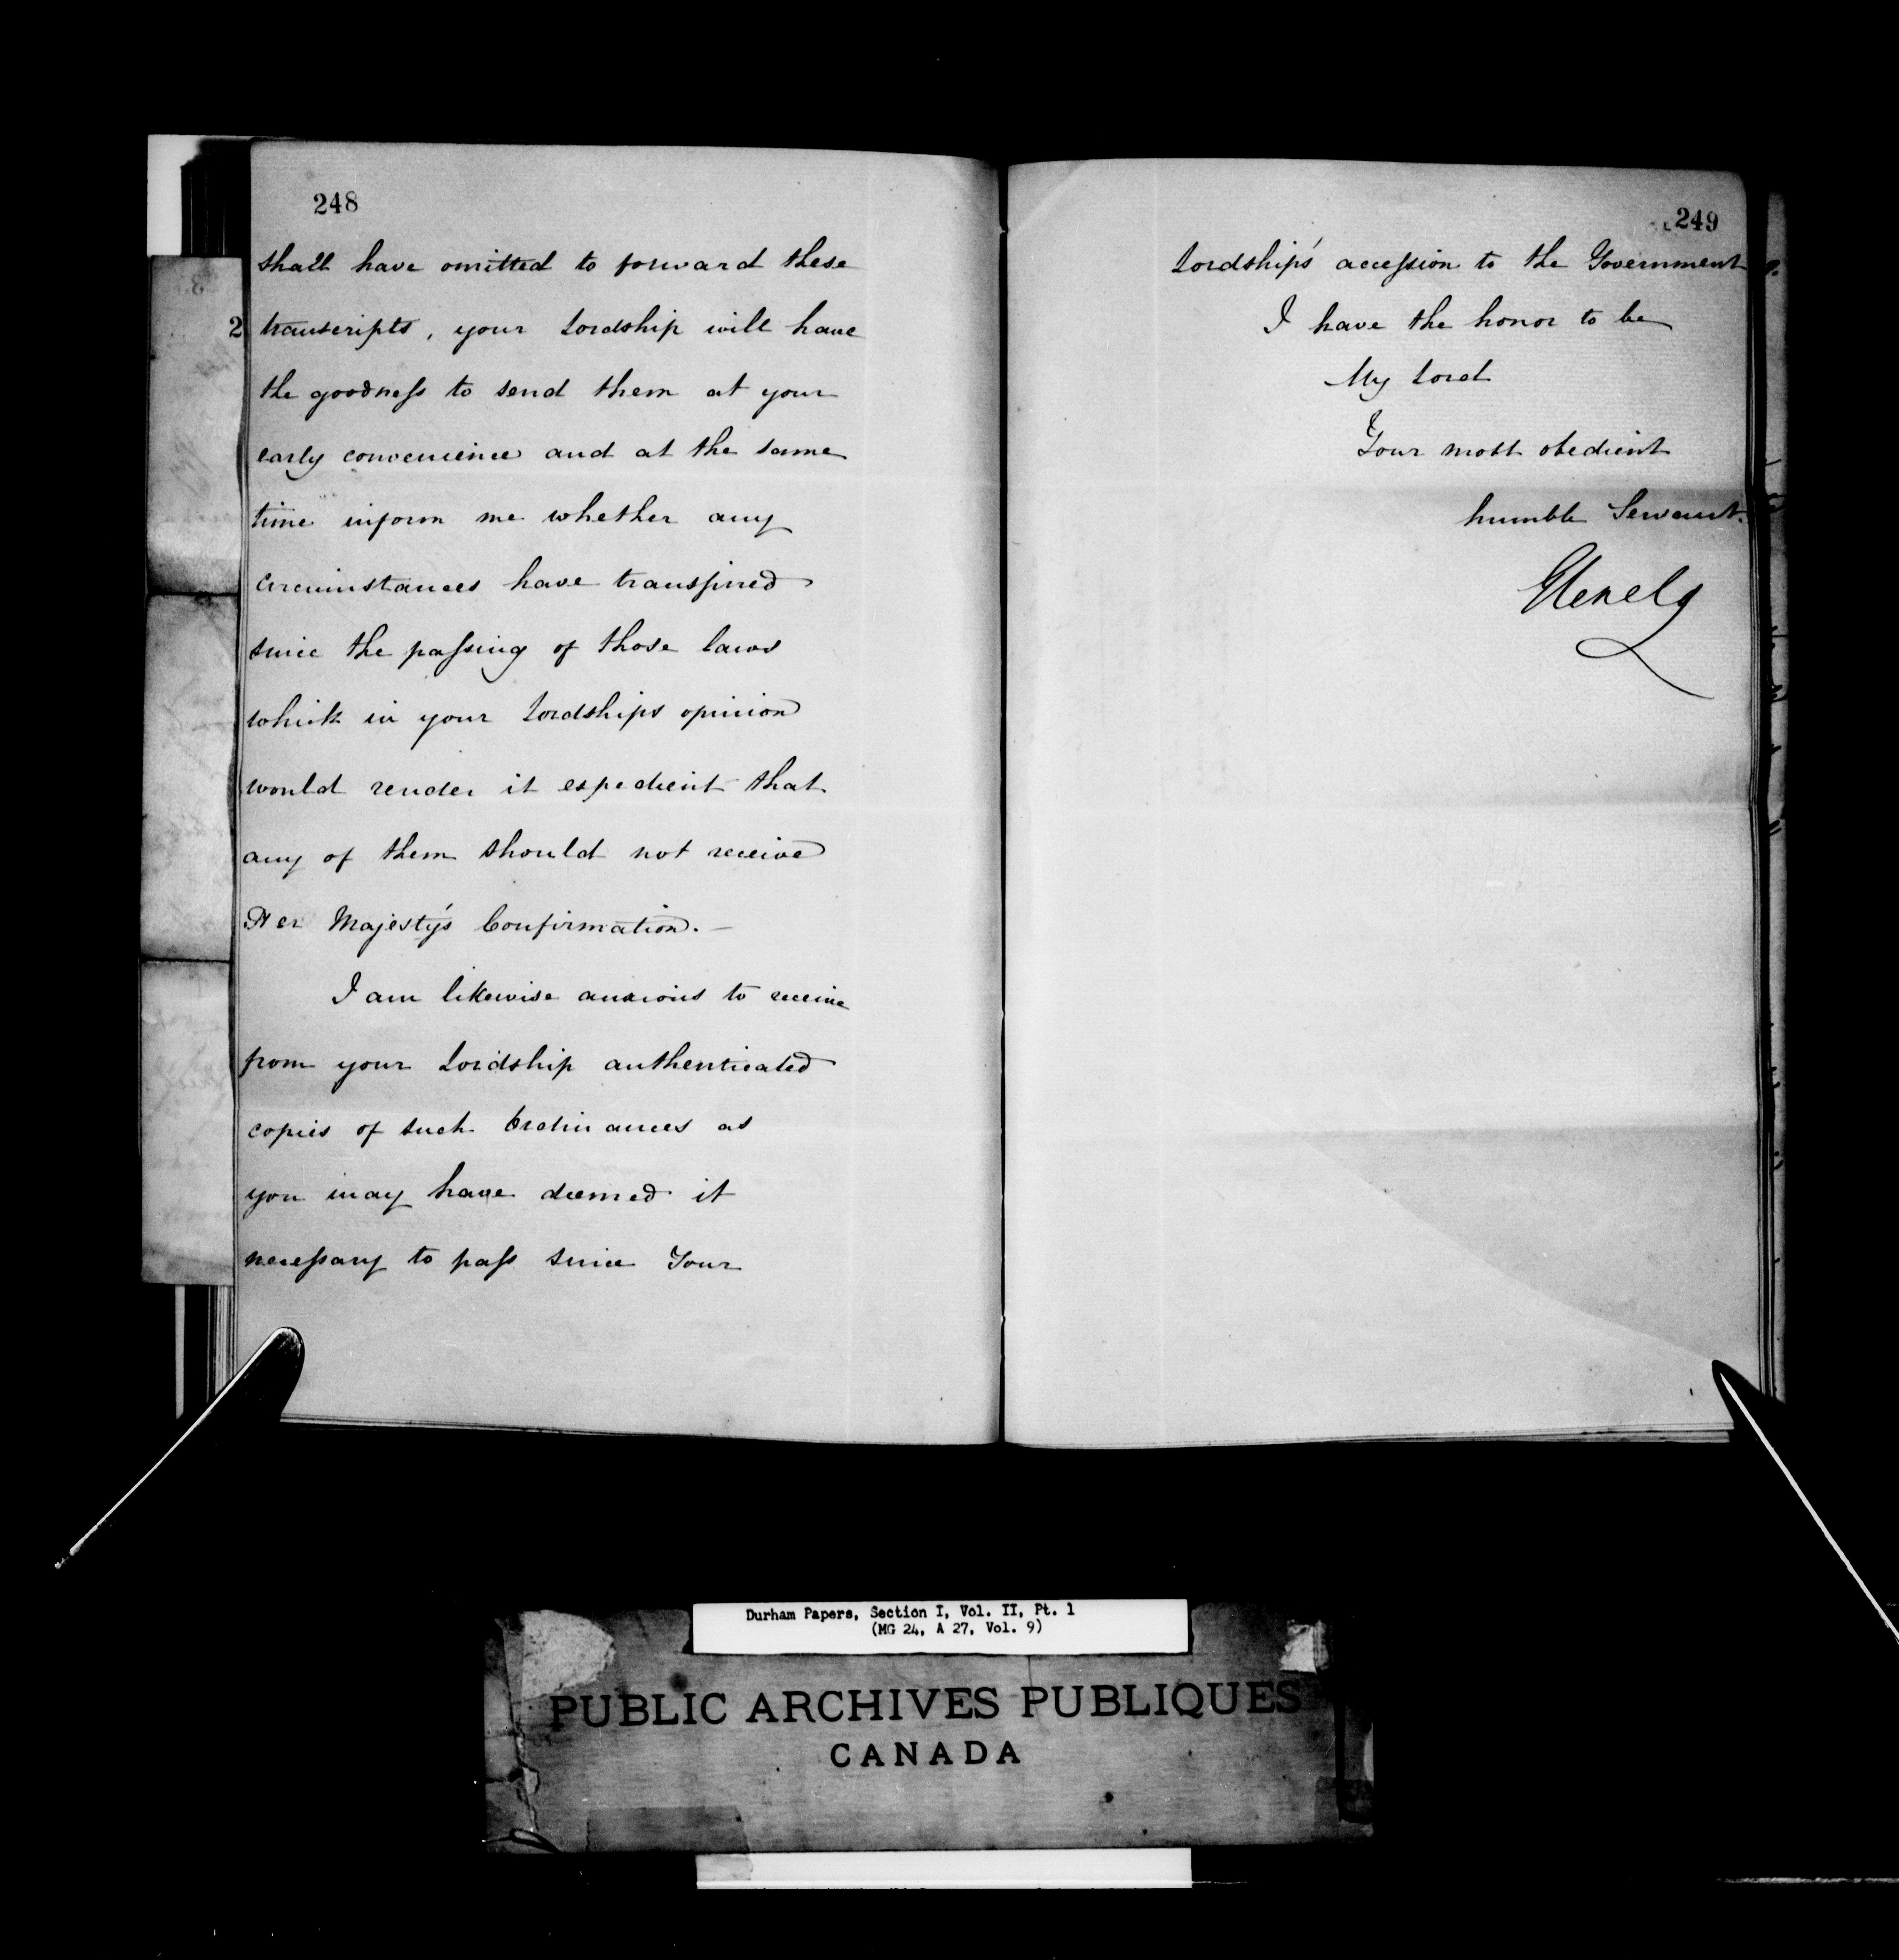 248
shall have omitted to forward these
2
transcripts, your Lordship will have
the goodness to send them at your
early convenience and at the same
time inform me whether any
circumstances have transpired
since the passing of those laws
which in your Lordships opinion
would render it expedient that
any of them should not receive
Her Majesty's Confirmation. –
I am likewise anxious to receive
from your Lordship authenticated
copies of such Ordinances as
you may have deemed it
necessary to pass since Your
249
Lordship's accession to the Government
I have the honor to be
My Lord
Your most obedient
humble Servant.
Glenelg
Durham Papers, Section I, Vol. II, Pt. 1
(MG 24, A 27, Vol. 9)
PUBLIC ARCHIVES PUBLIQUES
CANADA